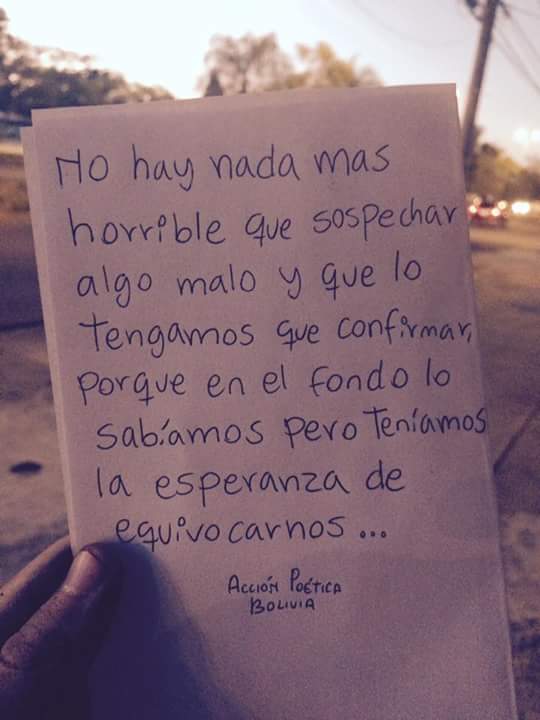 No hay nada mas
horrible que sospechar
algo malo y que lo
tengamos que confirmar,
porque en el fondo lo
sabíamos pero teníamos
la esperanza de
equivocarnos...
Acción Poética
Bolivia